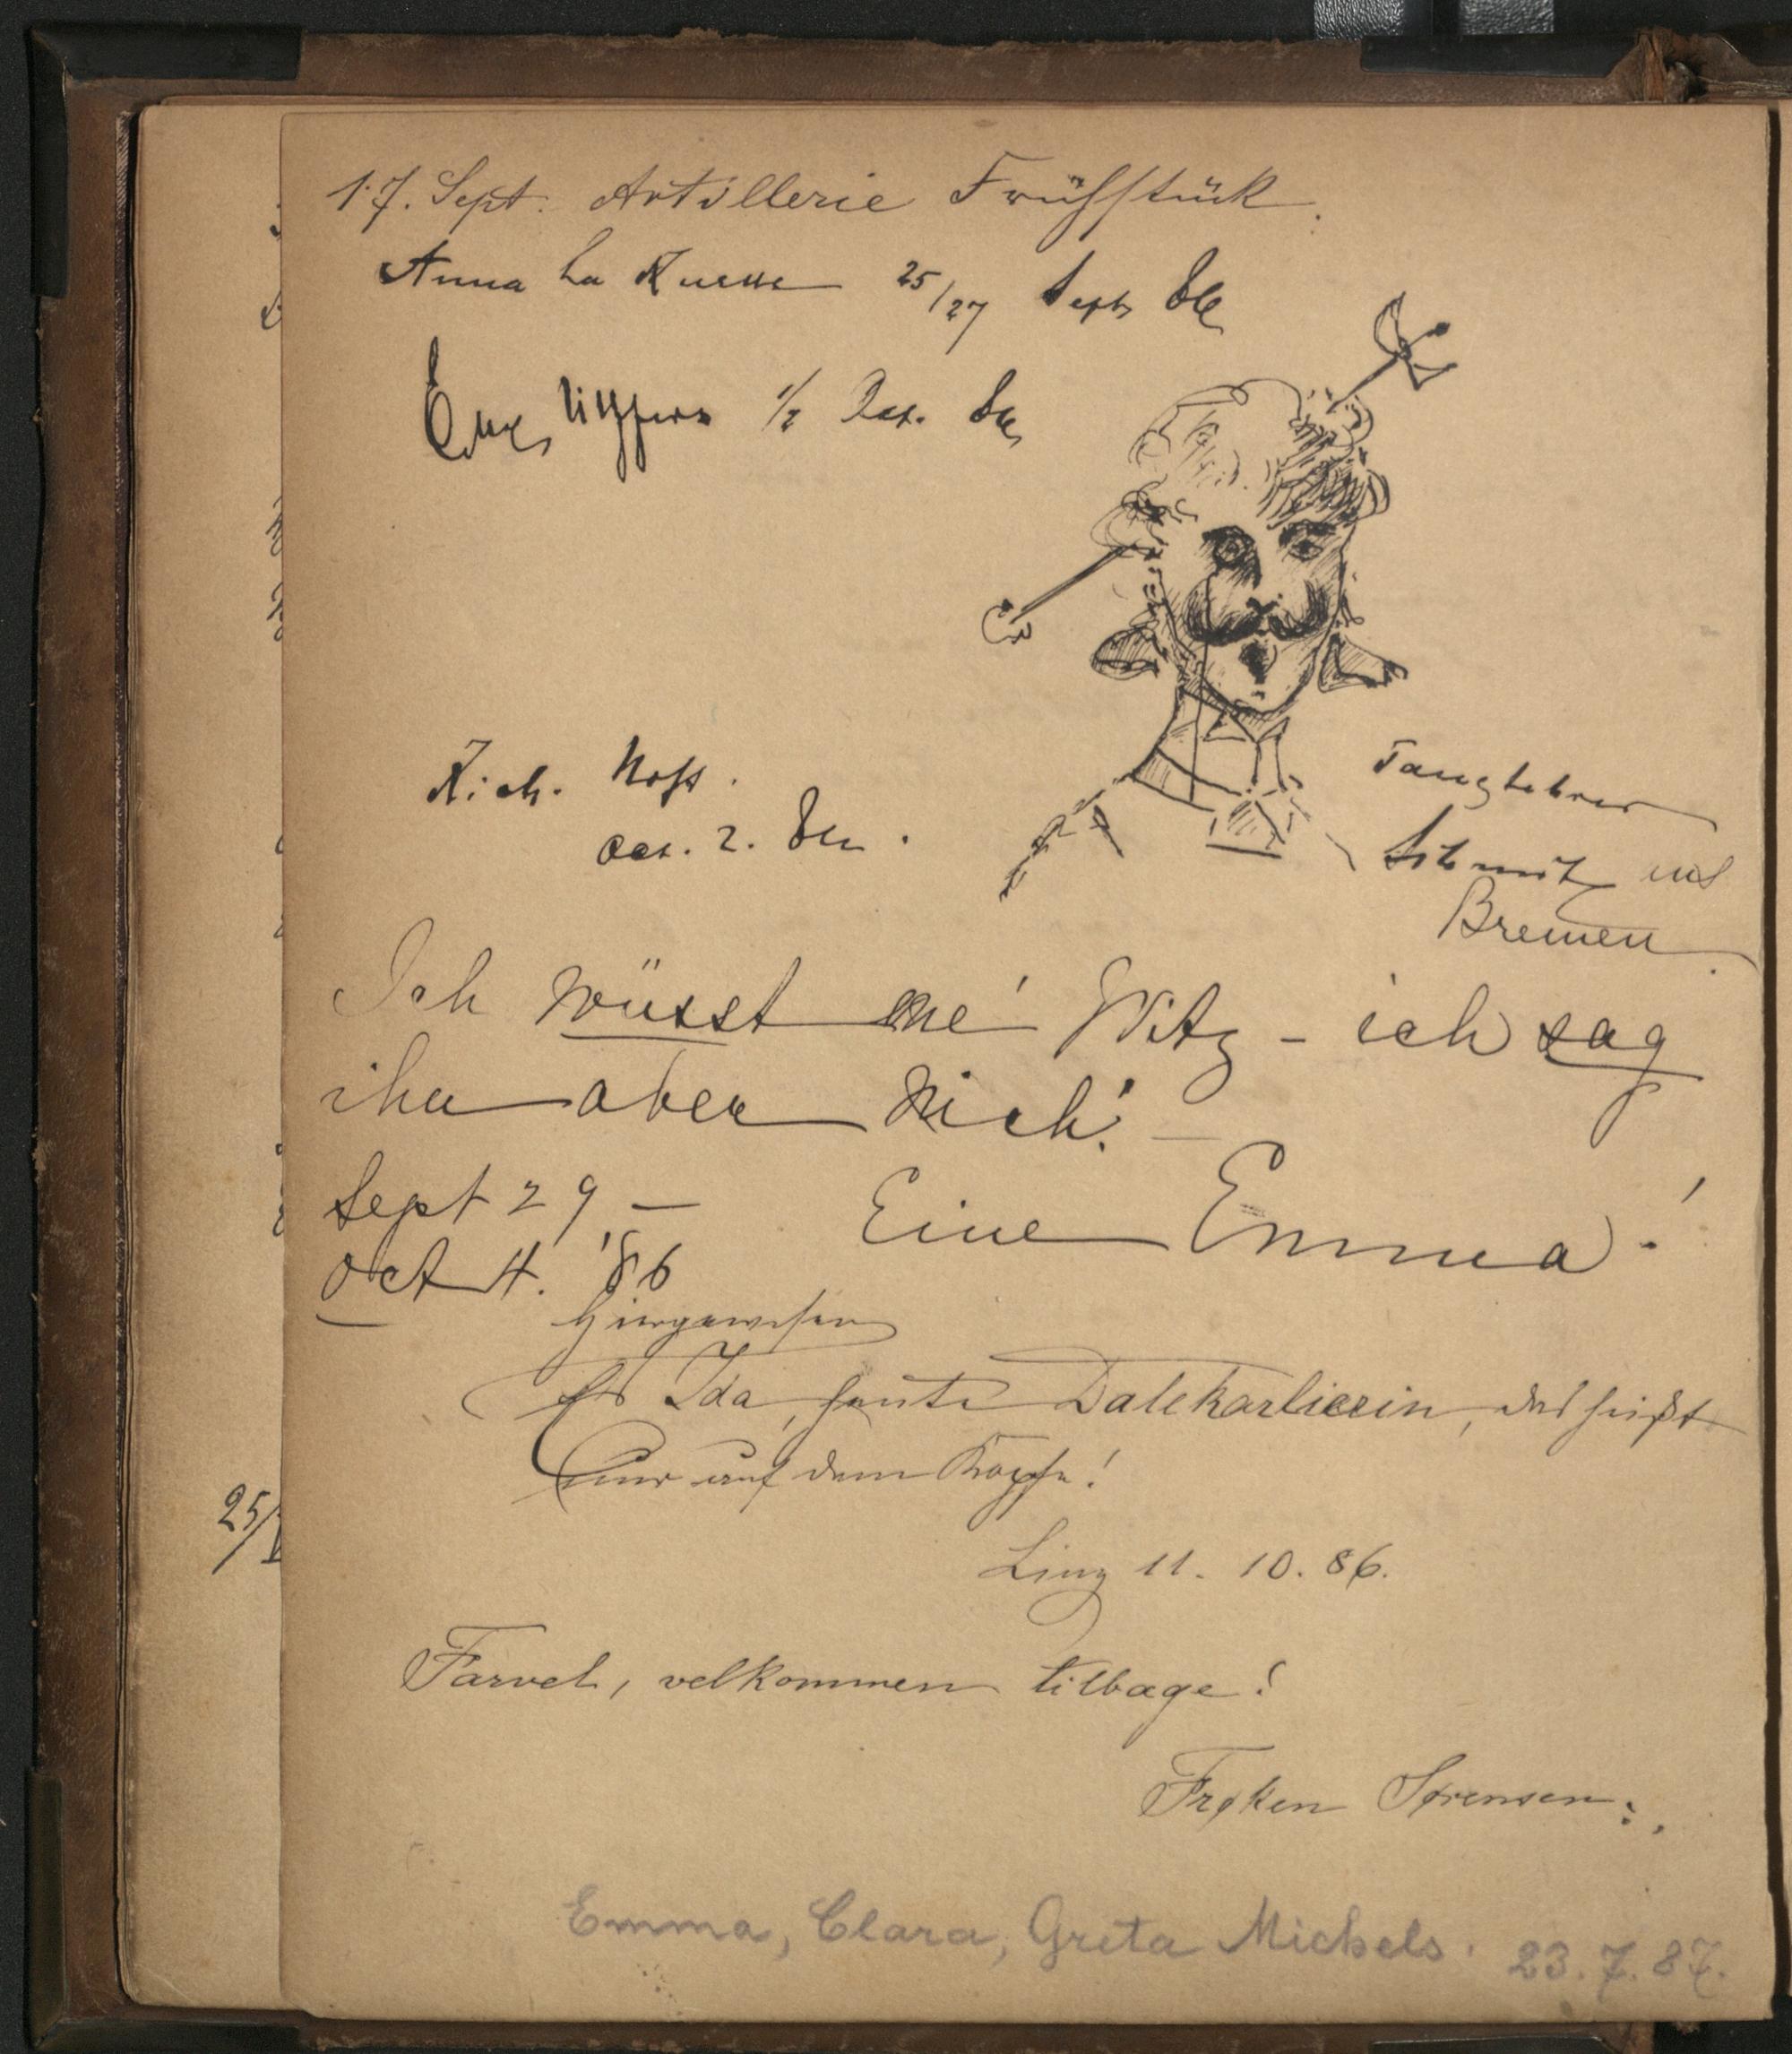 17. Sept. Artillerie Frühstück.
Anna La Ruelle 25/27 Sept 86
1/2 Oct. 86
Rich. Hoff.
Oct. 2. 86.
Tanzlehrer
Schmitz aus
Bremen.
Ich wüsst 'ne' Witz - ich sag
ihn aber nich'! -
Sept 29 -
Oct 4. '86
Eine Emma!
Hiergewesen
Ida, heute Dalekarlierin, das heißt
nur auf dem Kopfe!
Linz 11. 10. 86.
Farvel, velkommen tilbage!
Frøken Sørensen
Emma, Clara, Greta Michels. 23.7.87.
25/